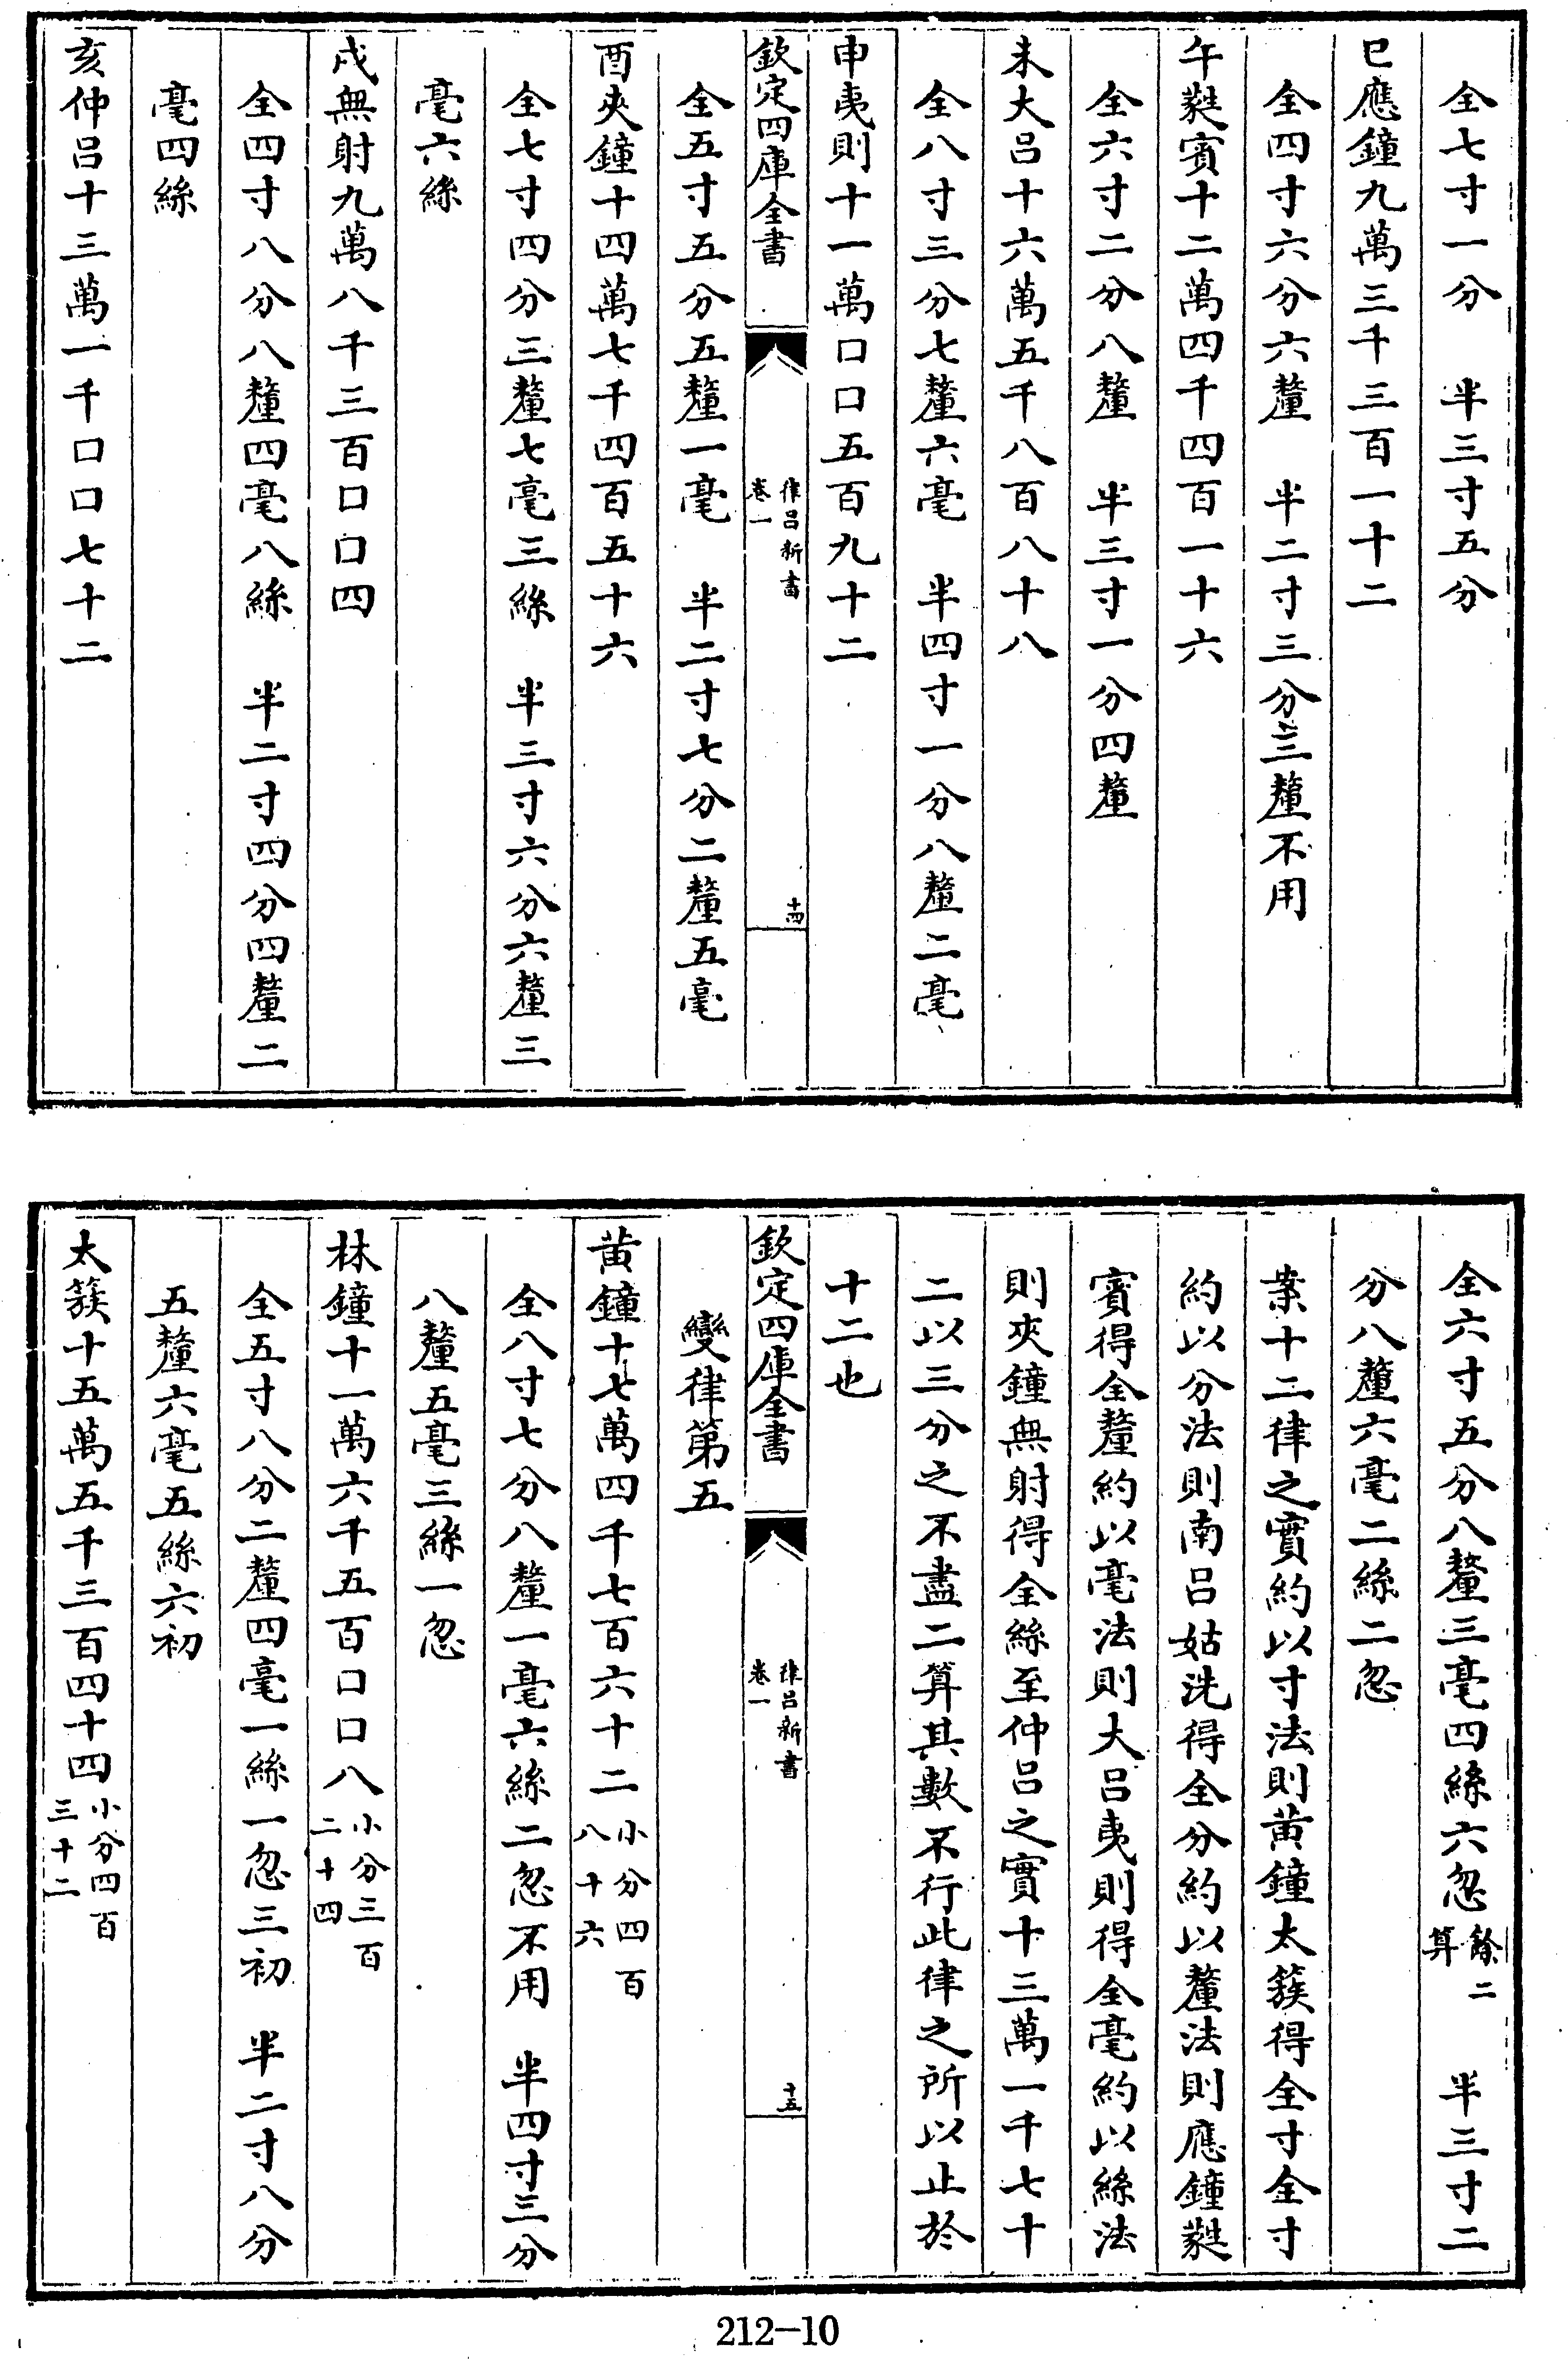 全七寸一分　半三寸五分
巳應鐘九萬三千三百一十二
全四寸六分六釐　半二寸三分三釐不用
午蕤賓十二萬四千四百一十六
全六寸二分八釐　半三寸一分四釐
未大呂十六萬五千八百八十八
全八寸三分七釐六毫　半四寸一分八釐二毫
申夷則十一萬口口五百九十二
欽定四庫全書
律呂新書
卷一
十四
全五寸五分五釐一毫　半二寸七分二釐五毫
酉夾鐘十四萬七千四百五十六
全七寸四分三釐七毫三絲　半三寸六分六釐三
毫六絲
戌無射九萬八千三百口口四
全四寸八分八釐四毫八絲　半二寸四分四釐二
毫四絲
亥仲呂十三萬一千口口七十二
全六寸五分八釐三毫四絲六忽餘二算　半三寸二
分八釐六毫二絲二忽
案十二律之實約以寸法則黃鐘太簇得全寸全寸
約以分法則南呂姑洗得全分約以釐法則應鐘蕤
賓得全釐約以毫法則大呂夷則得全毫約以絲法
則夾鐘無射得全絲至仲呂之實十三萬一千七十
二以三分之不盡二算其數不行此律之所以止於
十二也
欽定四庫全書
律呂新書
卷一
十五
變律第五
黃鐘十七萬四千七百六十二小分四百八十六
全八寸七分八釐一毫六絲二忽不用　半四寸三分
八釐五毫三絲一忽
林鐘十一萬六千五百口口八小分三百二十四
全五寸八分二釐四毫一絲一忽三初　半二寸八分
五釐六毫五絲六初
太簇十五萬五千三百四十四小分四百三十二
212-10